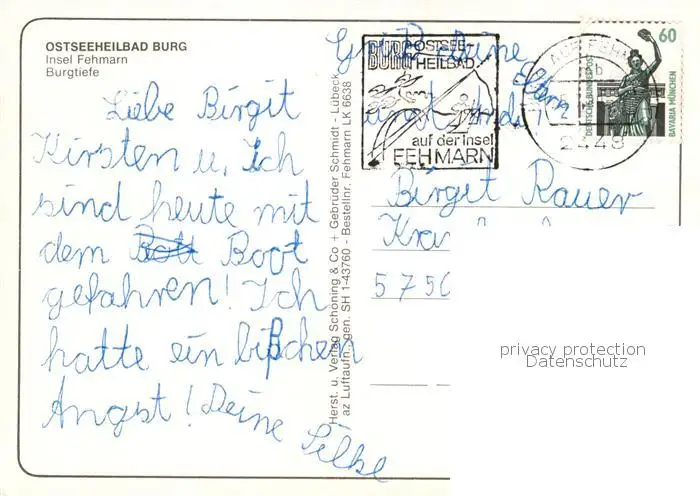 OSTSEEHEILBAD BURG
Insel Fehmarn
Burgtiefe
Liebe Birgit
Kirsten u. Ich
sind heute mit
dem Boot
gefahren! Ich
hatte ein bißchen
Angst! Deine
Silke
Herst. u. Verlag Schöning & Co + Gebrüder Schmidt - Lübeck
az Luftaufn. gen. SH 1-43760 - Bestellnr. Fehmarn LK 6638
Grüß deine
Eltern
BURG OSTSEE-
HEILBAD
auf der Insel
FEHMARN
AUF FEHM
2448
60
DEUTSCHE BUNDESPOST
BAVARIA MÜNCHEN
Birgit Rauer
Kra
5750
privacy protection
Datenschutz